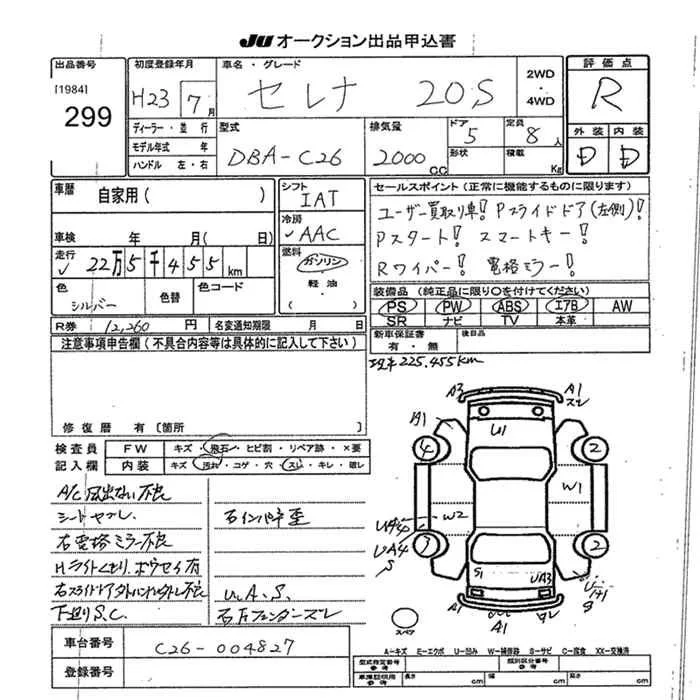 JU オークション出品申込書
出品番号
[1984]
299
初度登録年月
H23 7月
ディーラー・並行
モデル年式 年
ハンドル 左・右
車名・グレード
セレナ 20S
2WD・4WD
型式
DBA-C26
排気量
2000CC
ドア
5
形状
定員
8人
積載
Kg
評価点
R
外装 内装
D D
車歴 自家用( )
車検 年 月( 日)
走行
✓ 22万5千455km
色
シルバー
色替
色コード
R券 12,260円 名変通知期限 月 日
シフト
IAT
冷房
✓AAC
燃料
ガソリン
・
軽油
・
( )
セールスポイント(正常に機能するものに限ります)
ユーザー買取り車! Pスライドドア(左側)!
Pスタート! スマートキー!
Rワイパー! 電格ミラー!
装備品(純正品に限り○を付けてください)
PS PW ABS エアB AW
SR ナビ TV 本革
新車保証書
有・無
後日品
現车225.455km
注意事項申告欄(不具合内容等は具体的に記入して下さい)
修復歴 有〔箇所
検査員
記入欄
FW キズ・飛石・ヒビ割・リペア跡・×要
内装 キズ・汚れ・コゲ・穴・スレ・キレ・破レ
A/C風出ない不良
シートヤブレ
右電格ミラー不良
Hライトくもり、ホウセイ有
右スライドドアアウトハンドル外レ不良
下廻りS.C.
右インパネ歪
U.A.S.
右Fフェンダーズレ
A3
A1
スレ
A1
U1
4
2
W1
W2
UA4
3
UA4
S
2
S1
UA3
U1+1
S
A1
A1
スペア
A-キズ E-エクボ U-凹み W-補修跡 S-サビ C-腐食 XX-交換済
車台番号
C26-004827
登録番号
型式指定番号
参考
類別区分番号
参考
車庫証明用
参考
長さ cm 幅 cm 高さ cm